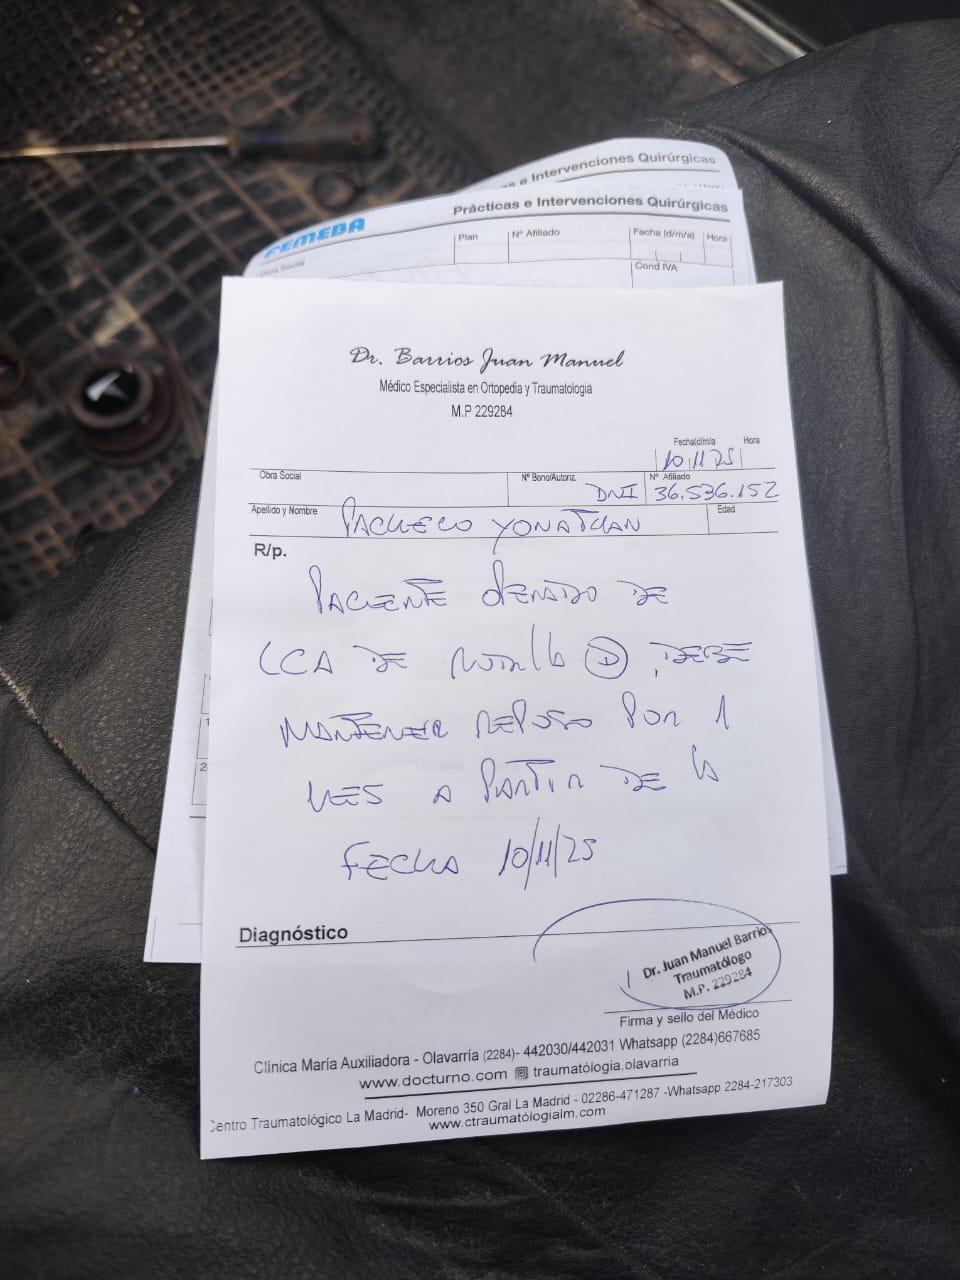 e Intervenciones Quirúrgicas
FEMEBA
Prácticas e Intervenciones Quirúrgicas
Obra Social
Plan
Nº Afiliado
Fecha (d/m/a)
Hora
Cond IVA
Dr. Barrios Juan Manuel
Médico Especialista en Ortopedia y Traumatologia
M.P 229284
Fecha(d/m/a Hora
10 11 25
Obra Social Nº Bono/Autoriz. Nº Afiliado
DNI 36.536.152
Apellido y Nombre PACHECO YONATHAN Edad
R/p.
PACIENTE OPERADO DE
LCA DE RODILLA D, DEBE
MANTENER REPOSO POR 1
MES A PARTIR DE LA
FECHA 10/11/25
Diagnóstico
Dr. Juan Manuel Barrios
Traumatólogo
M.P. 229284
Firma y sello del Médico
Clínica María Auxiliadora - Olavarría (2284)- 442030/442031 Whatsapp (2284)667685
www.docturno.com traumatólogia.olavarria
Centro Traumatológico La Madrid- Moreno 350 Gral La Madrid - 02286-471287 -Whatsapp 2284-217303
www.ctraumatólogialm.com